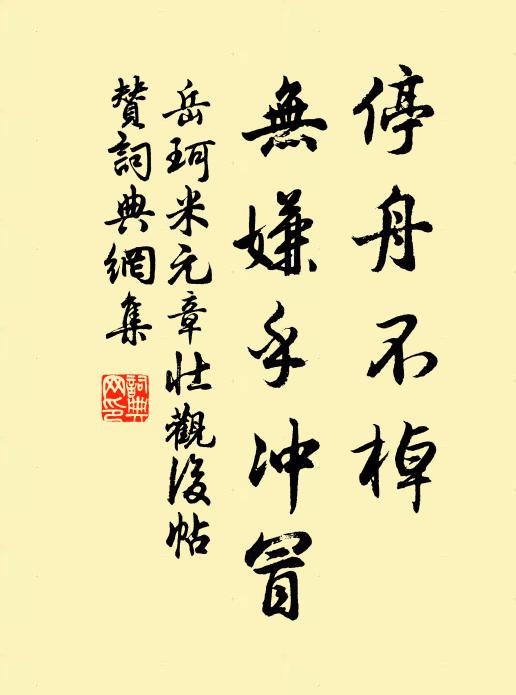 停舟不棹
無嫌乎冲冒
岳珂米元章壯觀後帖
贊詞典網集
詞典
网印